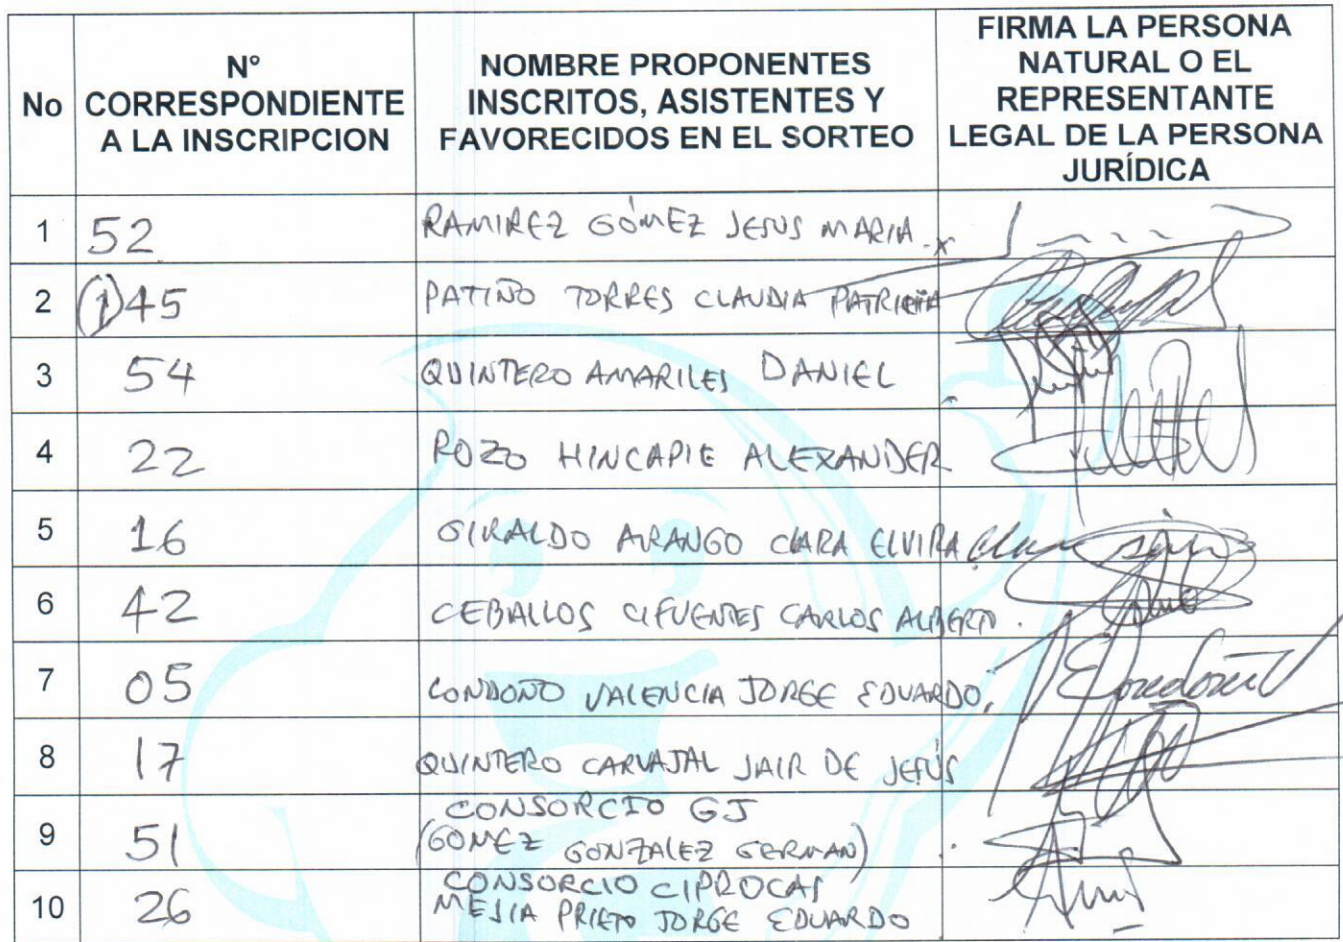 No
N°
CORRESPONDIENTE
A LA INSCRIPCION
NOMBRE PROPONENTES
INSCRITOS, ASISTENTES Y
FAVORECIDOS EN EL SORTEO
FIRMA LA PERSONA
NATURAL O EL
REPRESENTANTE
LEGAL DE LA PERSONA
JURÍDICA
1 52 RAMIREZ GÓMEZ JESUS MARIA
2 145 PATIÑO TORRES CLAUDIA PATRICIA
3 54 QUINTERO AMARILES DANIEL
4 22 ROZO HINCAPIE ALEXANDER
5 16 GIRALDO ARANGO CLARA ELVIRA
6 42 CEBALLOS CIFUENTES CARLOS ALBERTO.
7 05 LONDOÑO VALENCIA JORGE EDUARDO.
8 17 QUINTERO CARVAJAL JAIR DE JESÚS
CONSORCIO GJ
9 51 (GOMEZ GONZALEZ GERMAN)
CONSORCIO CIPROCAS
10 26 MEJIA PRIETO JORGE EDUARDO